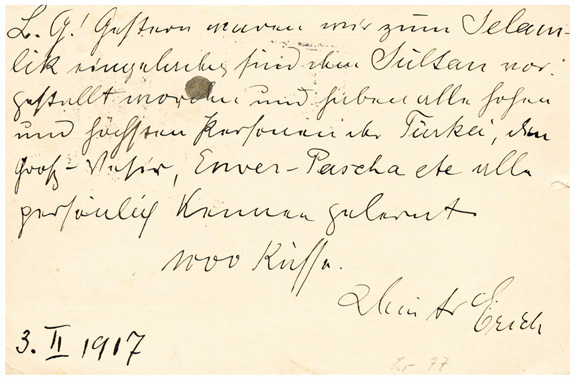 L. G.! Gestern waren wir zum Selam-
lik eingeladen, sind dem Sultan vor-
gestellt worden und haben alle hohen
und höchsten Personen der Türkei, den
Groß-Vesir, Enver-Pascha etc alle
persönlich kennen gelernt
1000 Küsse.
Dein tr Erich
3. II 1917